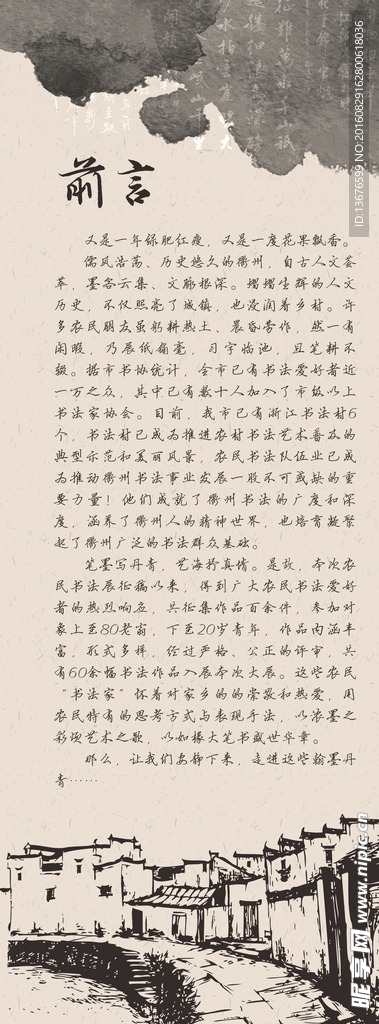 前言
又是一年绿肥红瘦，又是一度花果飘香。
儒风浩荡、历史悠久的衢州，自古人文荟
萃，墨客云集、文脉根深。熠熠生辉的人文
历史，不仅照亮了城镇，也浸润着乡村。许
多农民朋友虽躬耕热土、晨昏劳作，然一有
闲暇，乃展纸搦毫，习字临池，且笔耕不
辍。据市书协统计，全市已有书法爱好者近
一万之众，其中已有数十人加入了市级以上
书法家协会。目前，我市已有浙江书法村6
个，书法村已成为推进农村书法艺术普及的
典型示范和美丽风景，农民书法队伍业已成
为推动衢州书法事业发展一股不可或缺的重
要力量！他们成就了衢州书法的广度和深
度，涵养了衢州人的精神世界，也培育凝聚
起了衢州广泛的书法群众基础。
笔墨写丹青，艺海抒真情。是故，本次农
民书法展征稿以来，得到广大农民书法爱好
者的热烈响应，共征集作品百余件，参加对
象上至80老翁，下至20岁青年，作品内涵丰
富，形式多样，经过严格、公正的评审，共
有60余幅书法作品入展本次大展。这些农民
“书法家”怀着对家乡的的崇敬和热爱，用
农民特有的思考方式与表现手法，以浓墨之
彩颂艺术之歌，以如椽大笔书盛世华章。
那么，让我们安静下来，走进这些翰墨丹
青……
ID:13676599 NO:20160829162800618036
昵享网 www.nipic.cn